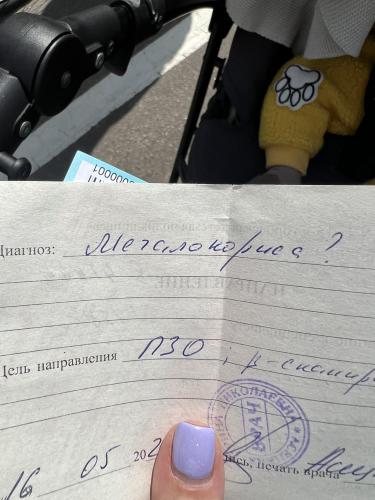 000001
Диагноз: Мегалокорнеа ?
Цель направления ПЗО ; β-сканир
16 05 202 пись, печать врача
НИКОЛАЕВНА
ВРАЧ